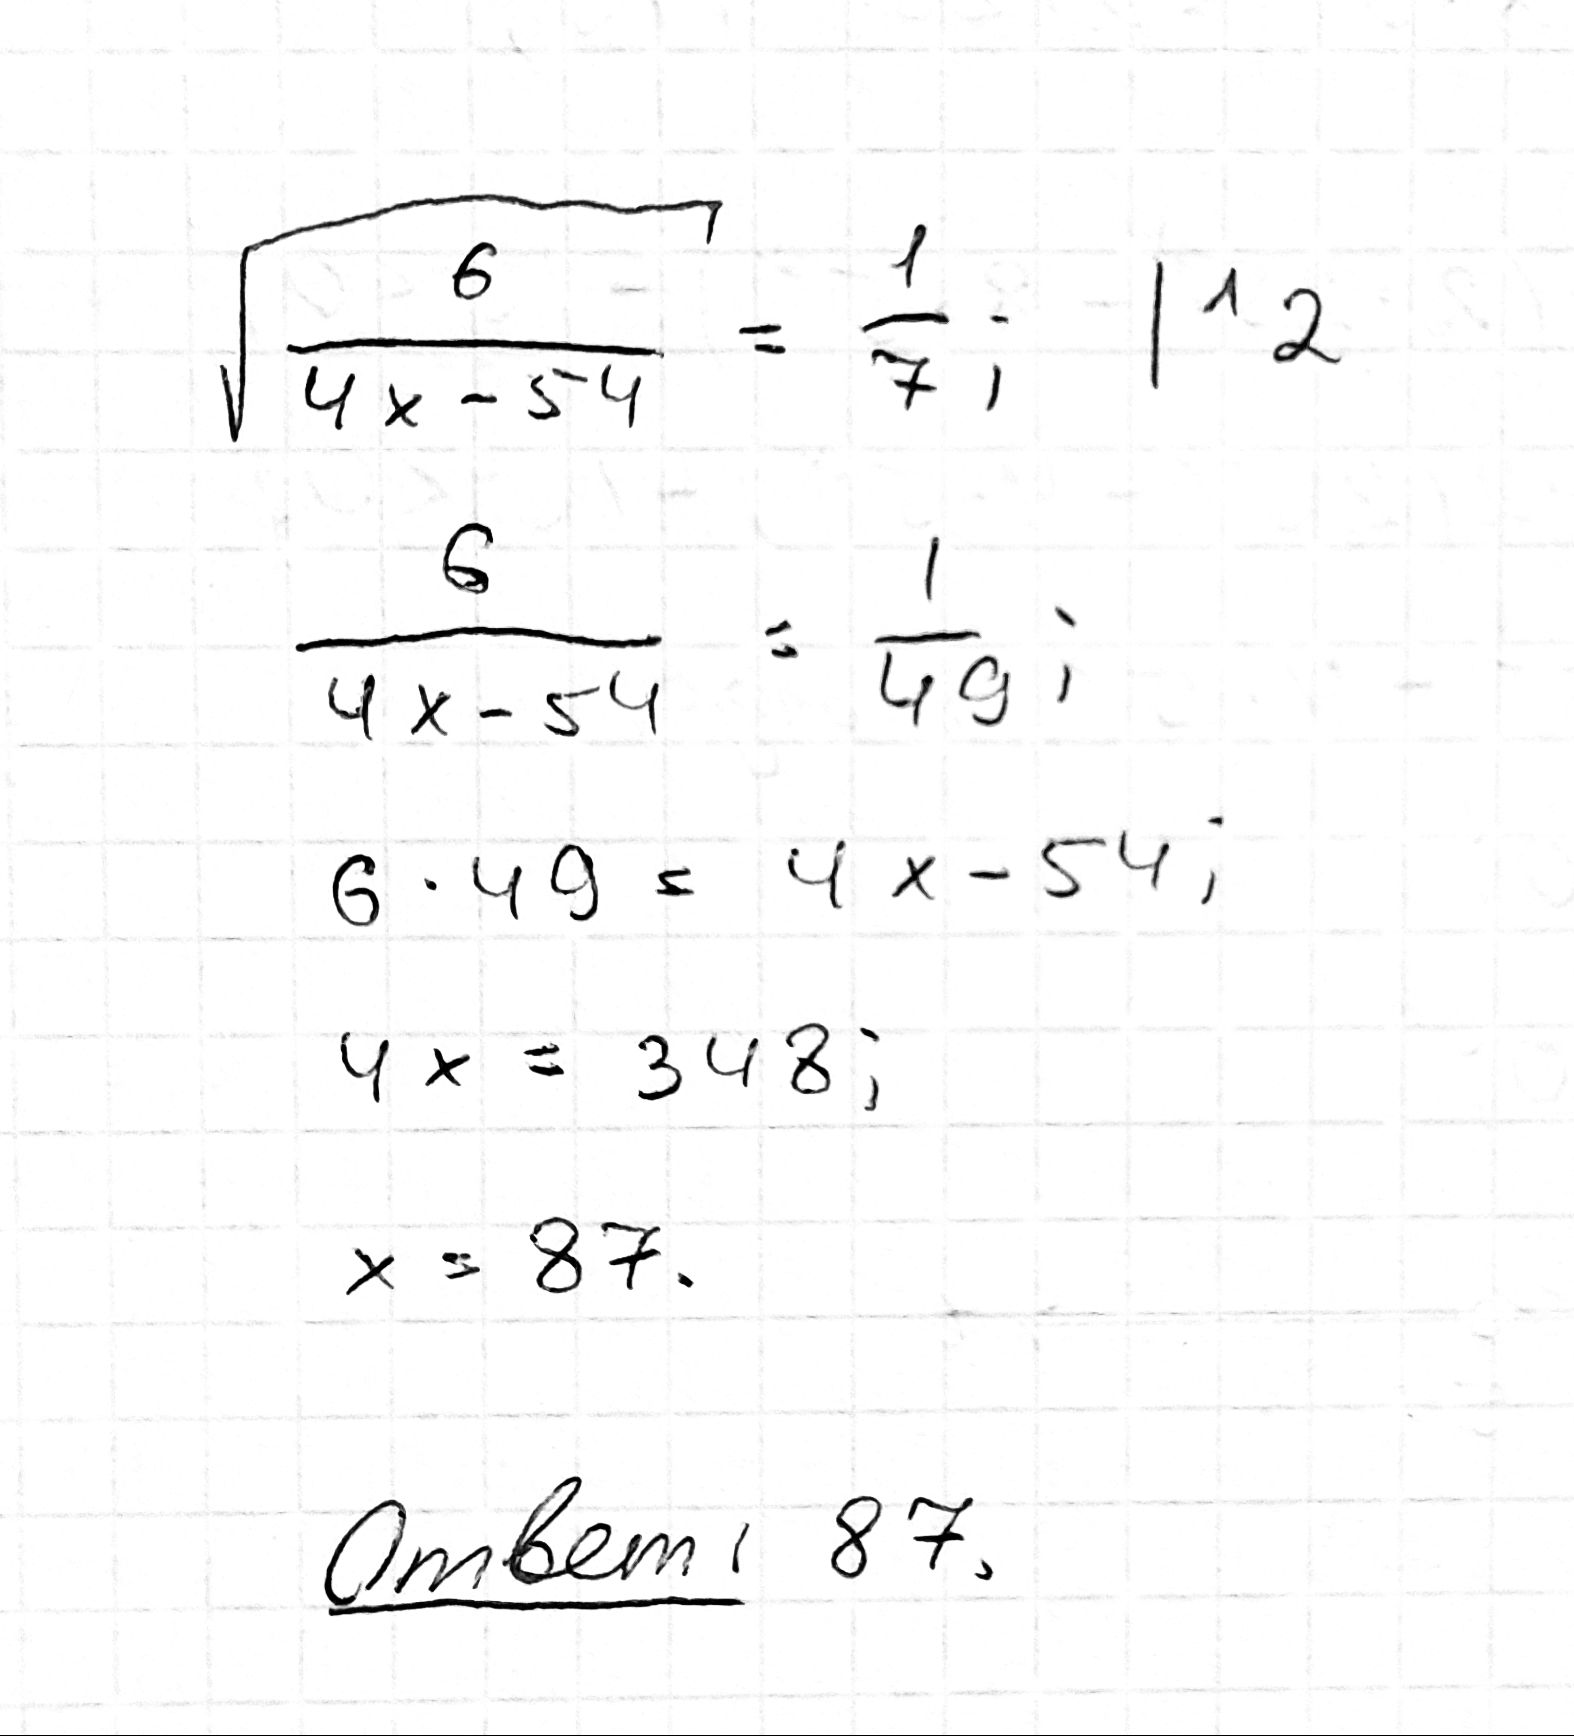 √(6/(4x-54)) = 1/7; |^2
6/(4x-54) = 1/49;
6·49 = 4x-54;
4x = 348;
x = 87.
Ответ: 87.